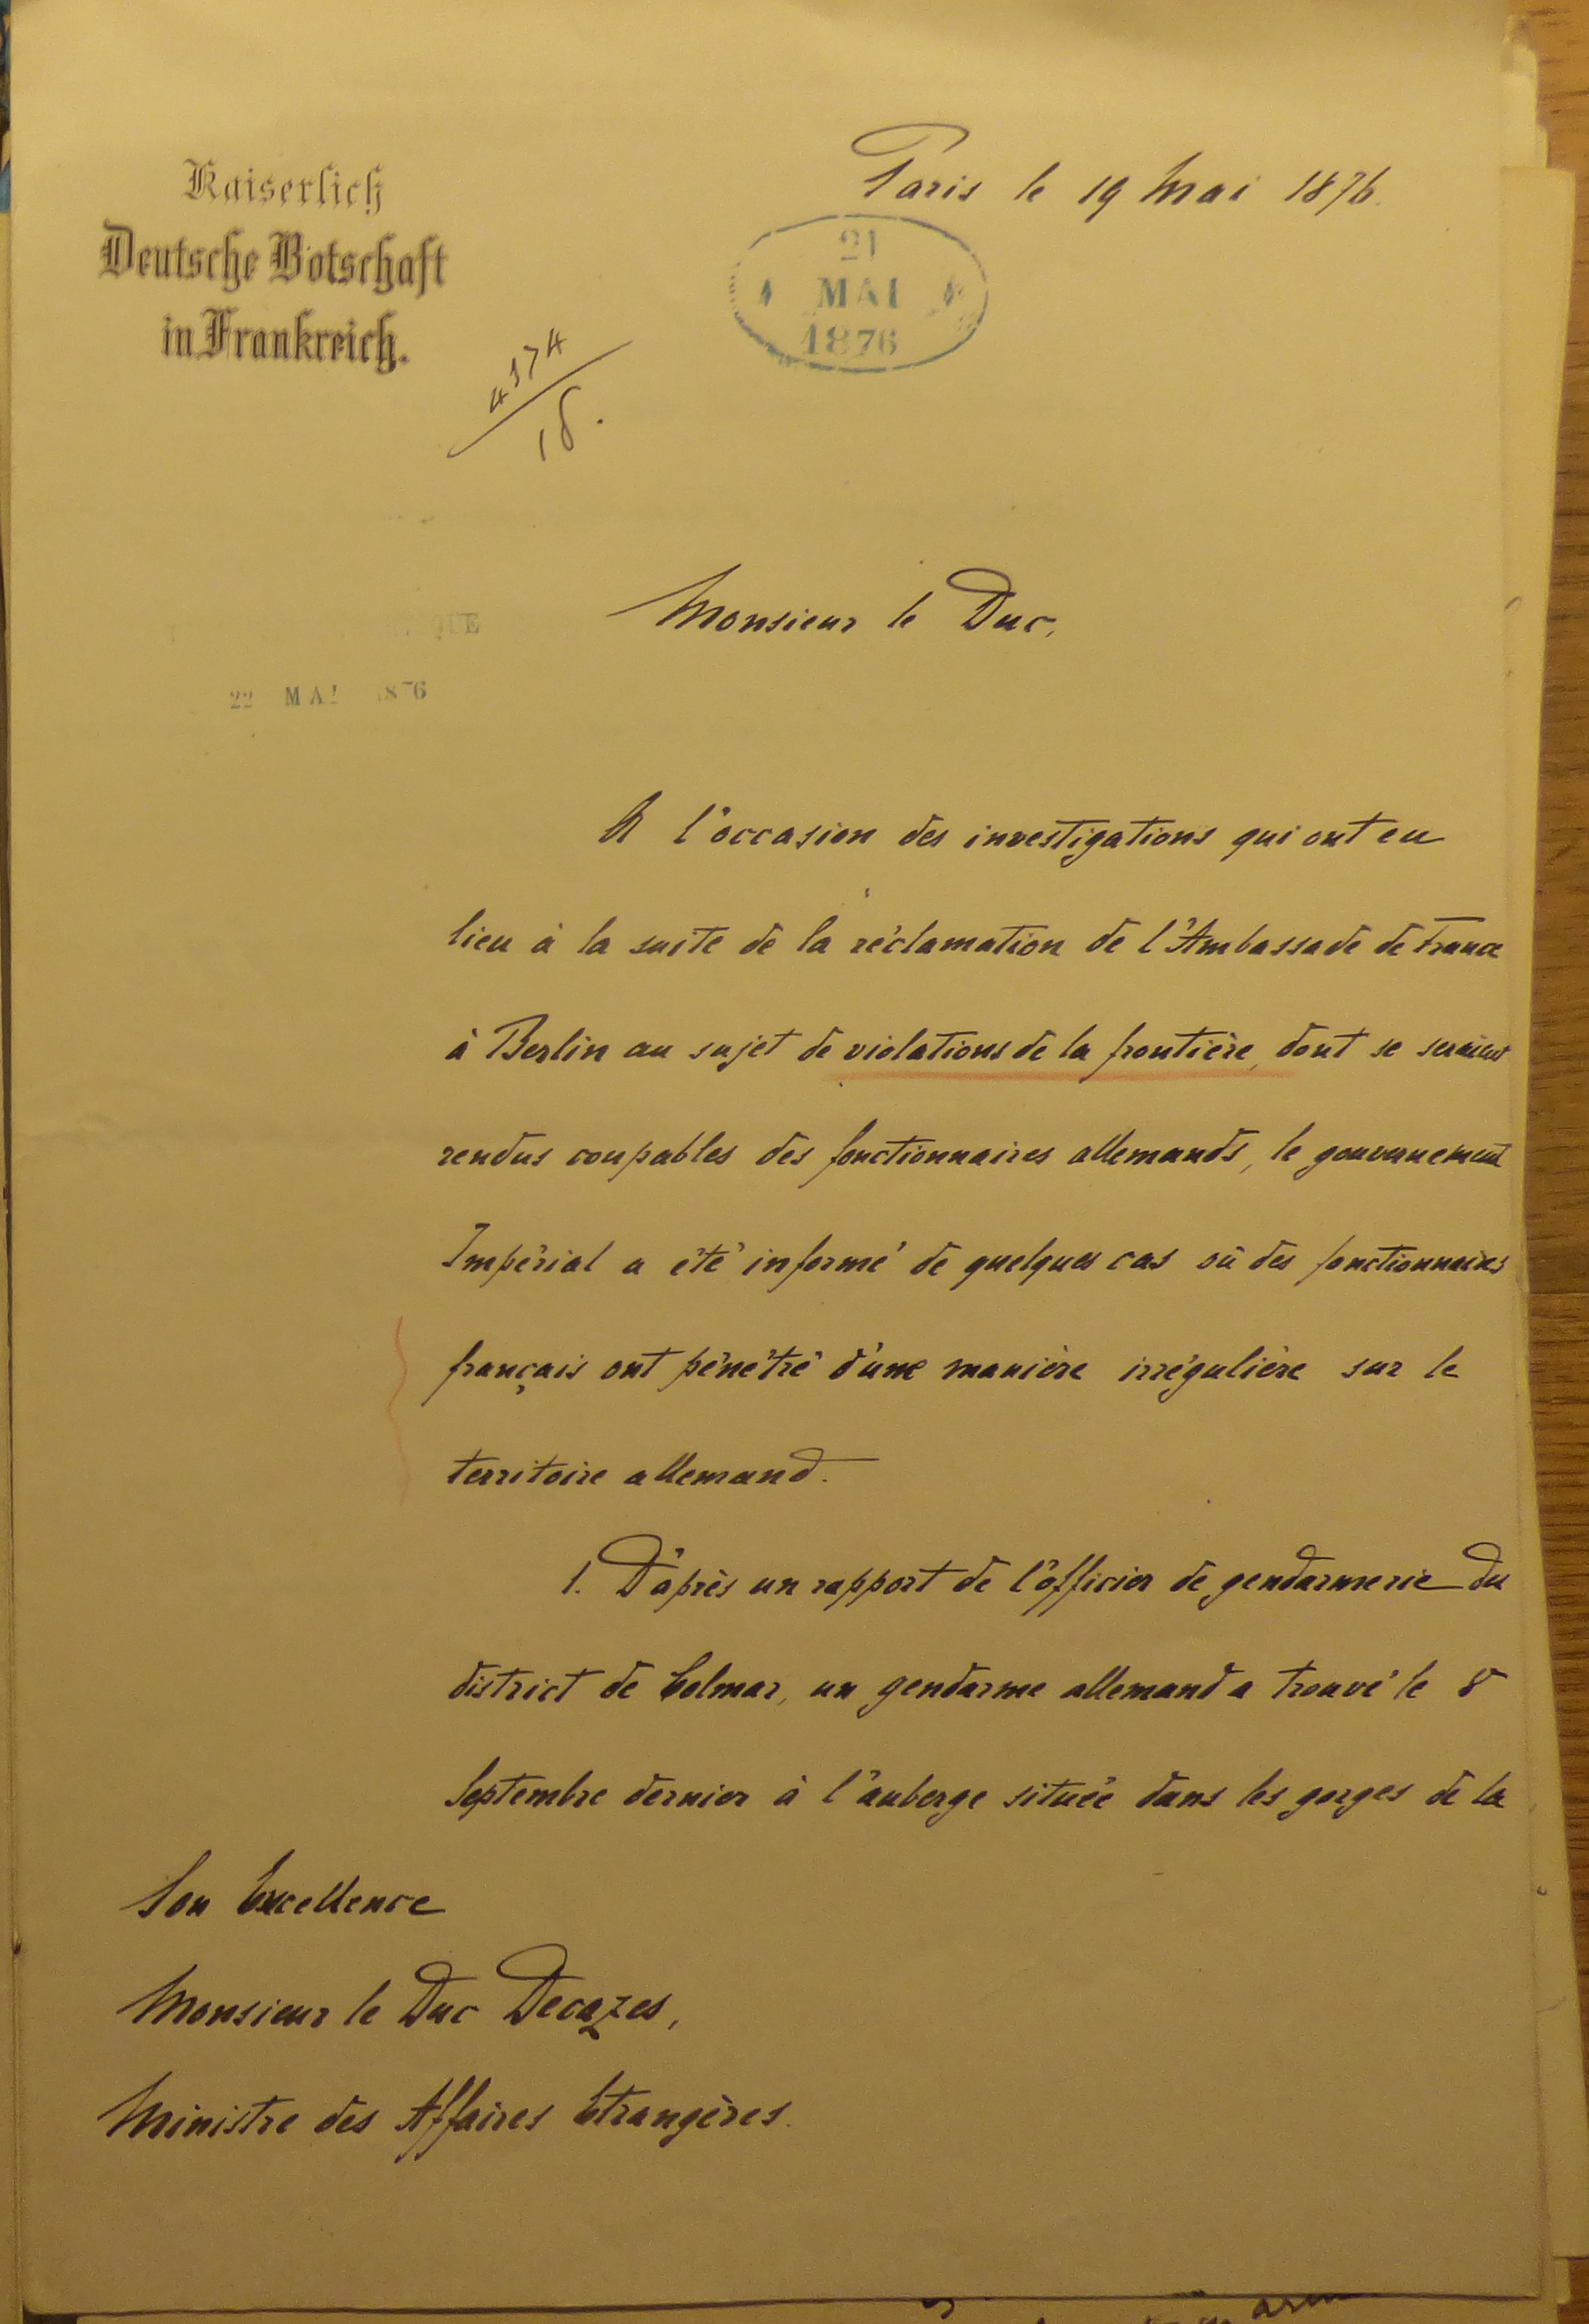 Kaiserlich
Deutsche Botschaft
in Frankreich.
Paris le 19 Mai 1876.
21
MAI
1876
4374
18.
QUE
22 MAI 1876
Monsieur le Duc,
A l'occasion des investigations qui ont eu
lieu à la suite de la réclamation de l'Ambassade de France
à Berlin au sujet de violations de la frontière, dont se seraient
rendus coupables des fonctionnaires allemands, le gouvernement
Impérial a été informé de quelques cas où des fonctionnaires
français ont pénétré d'une manière irrégulière sur le
territoire allemand.
1. D'après un rapport de l'officier de gendarmerie du
district de Colmar, un gendarme allemand a trouvé le 8
Septembre dernier à l'auberge située dans les gorges de la
Son Excellence
Monsieur le Duc Decazes,
Ministre des Affaires Etrangères.